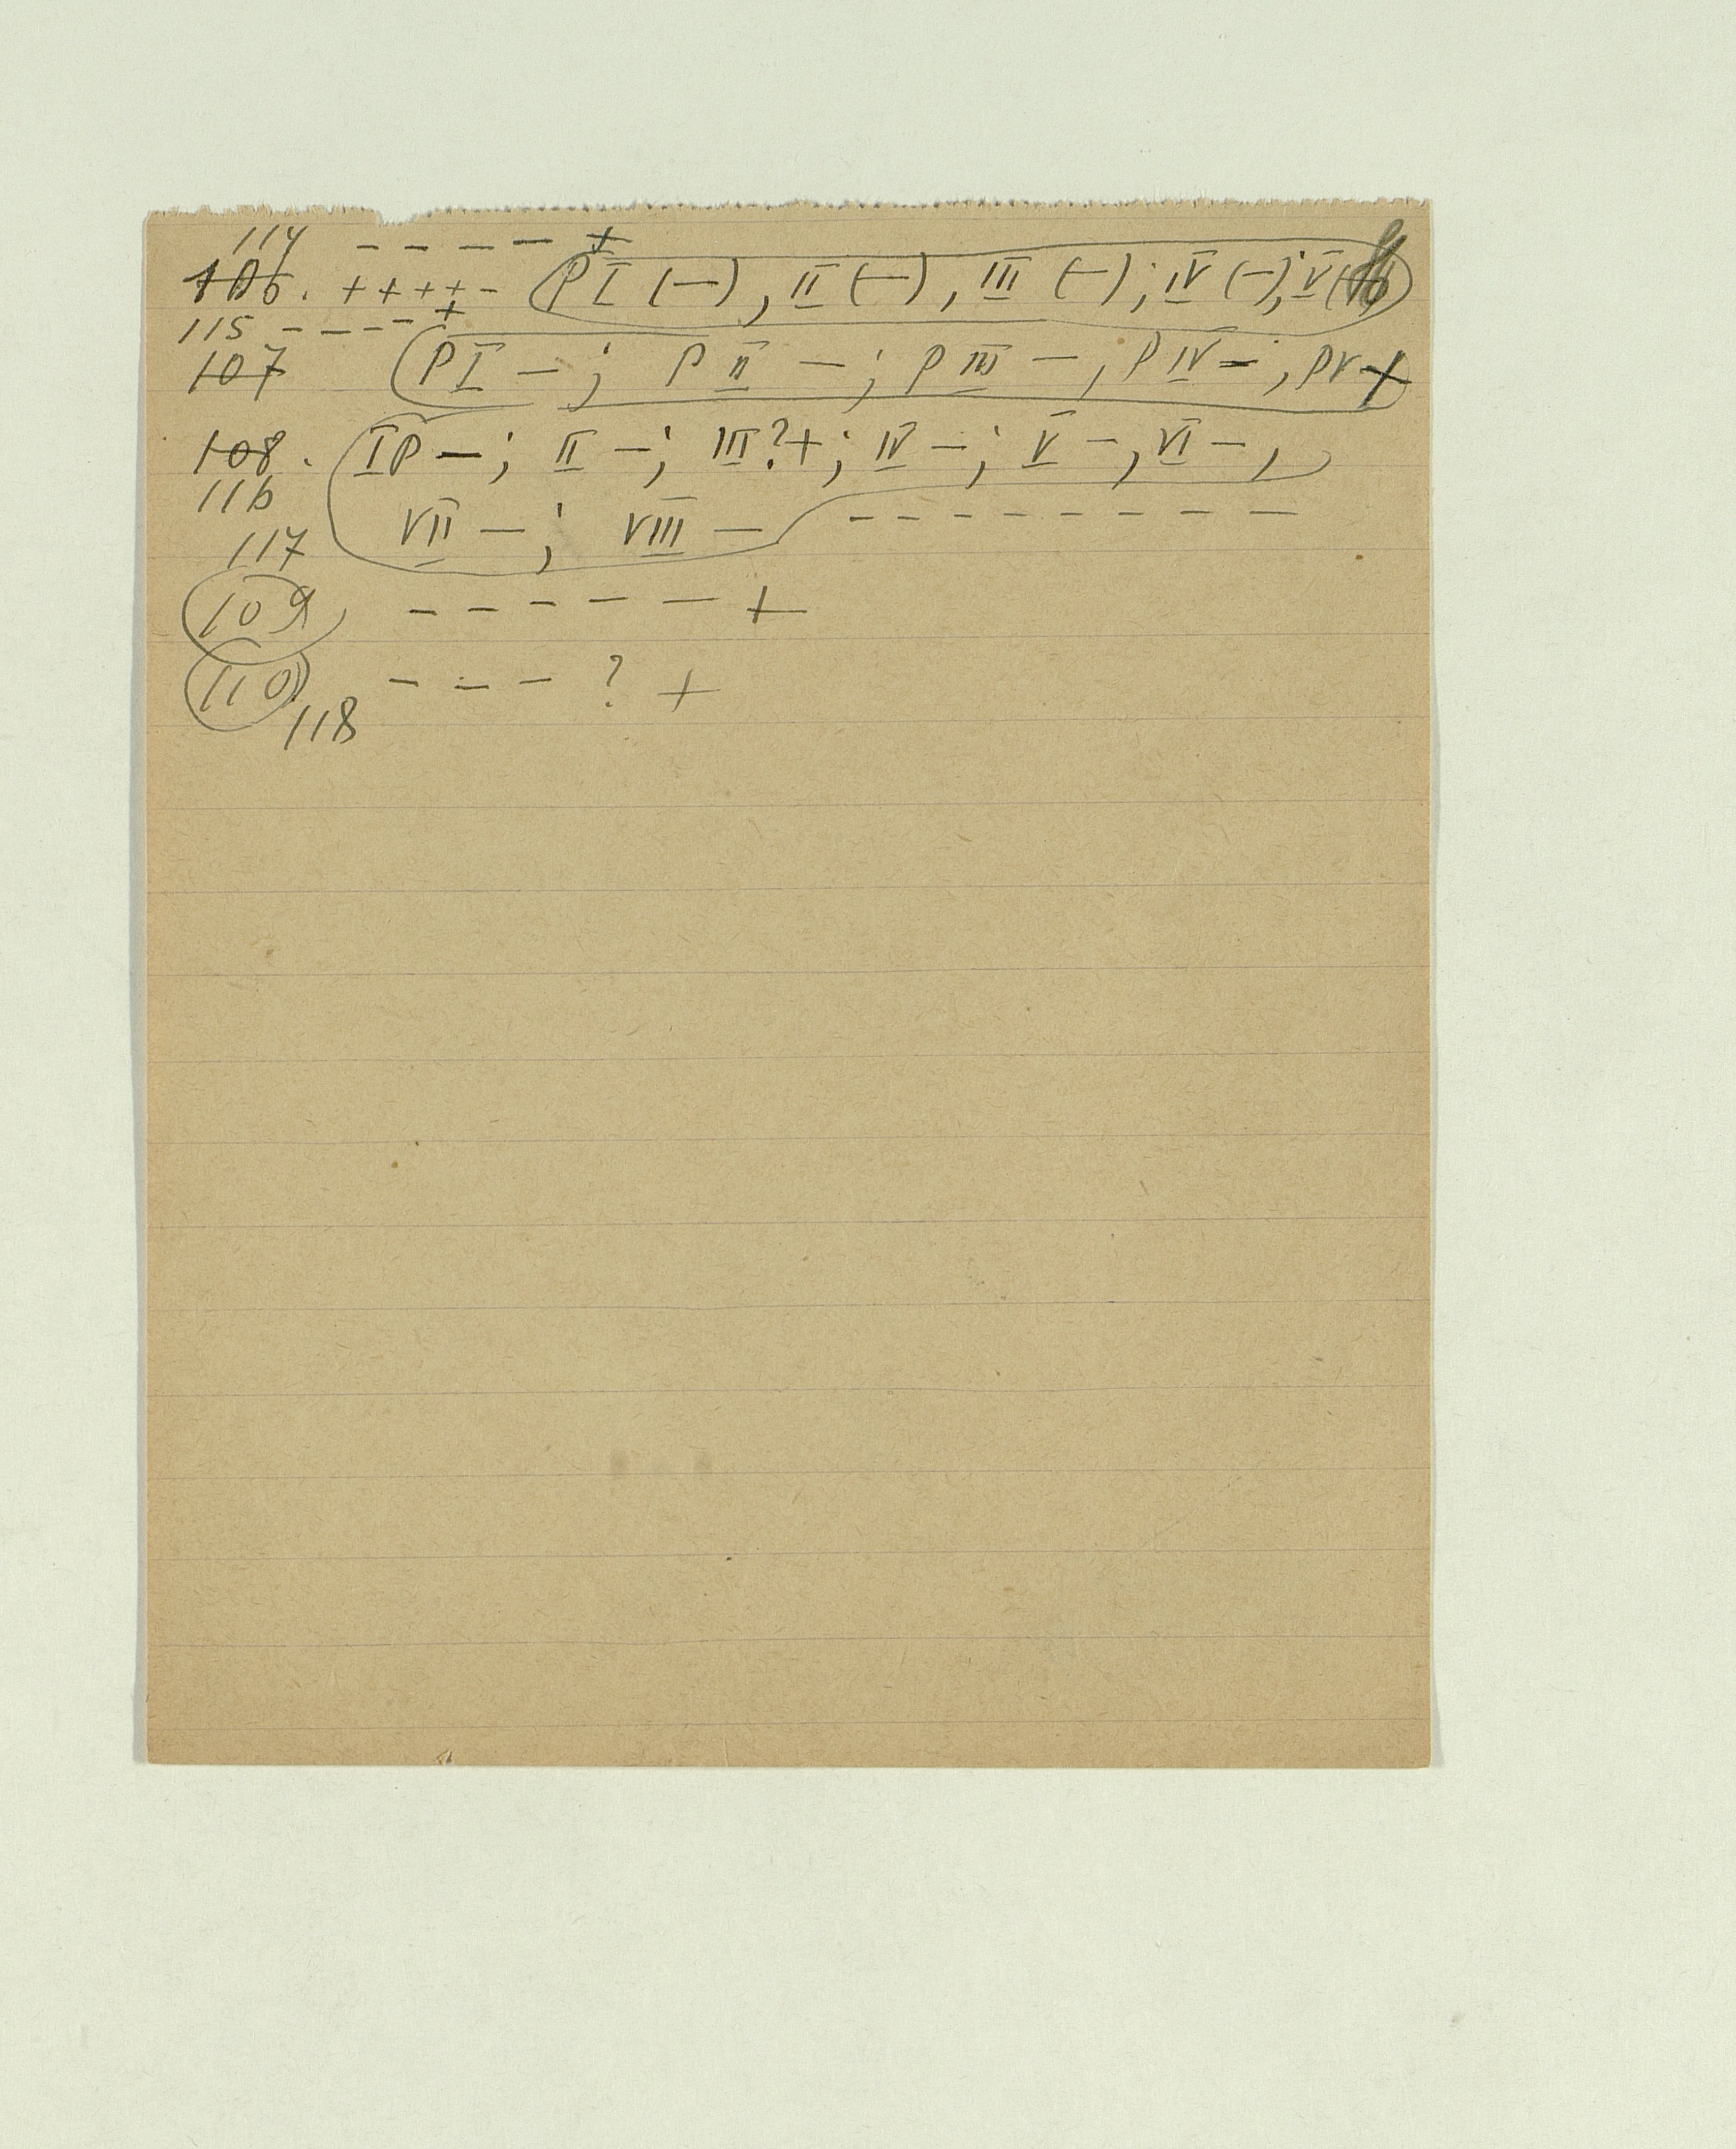 114 – – – – +
106. + + + + – PI (–), II (–), III (–); IV (–); V (
115 – – – – +
107 PI – ; PII – ; PIII – , PIV – , PV +
108. IP – ; II – ; III ? + ; IV – ; V – , VI – ,
116
VII – ; VIII – – – – – – – – – –
117
109 – – – – – – +
110 – – – ? +
118